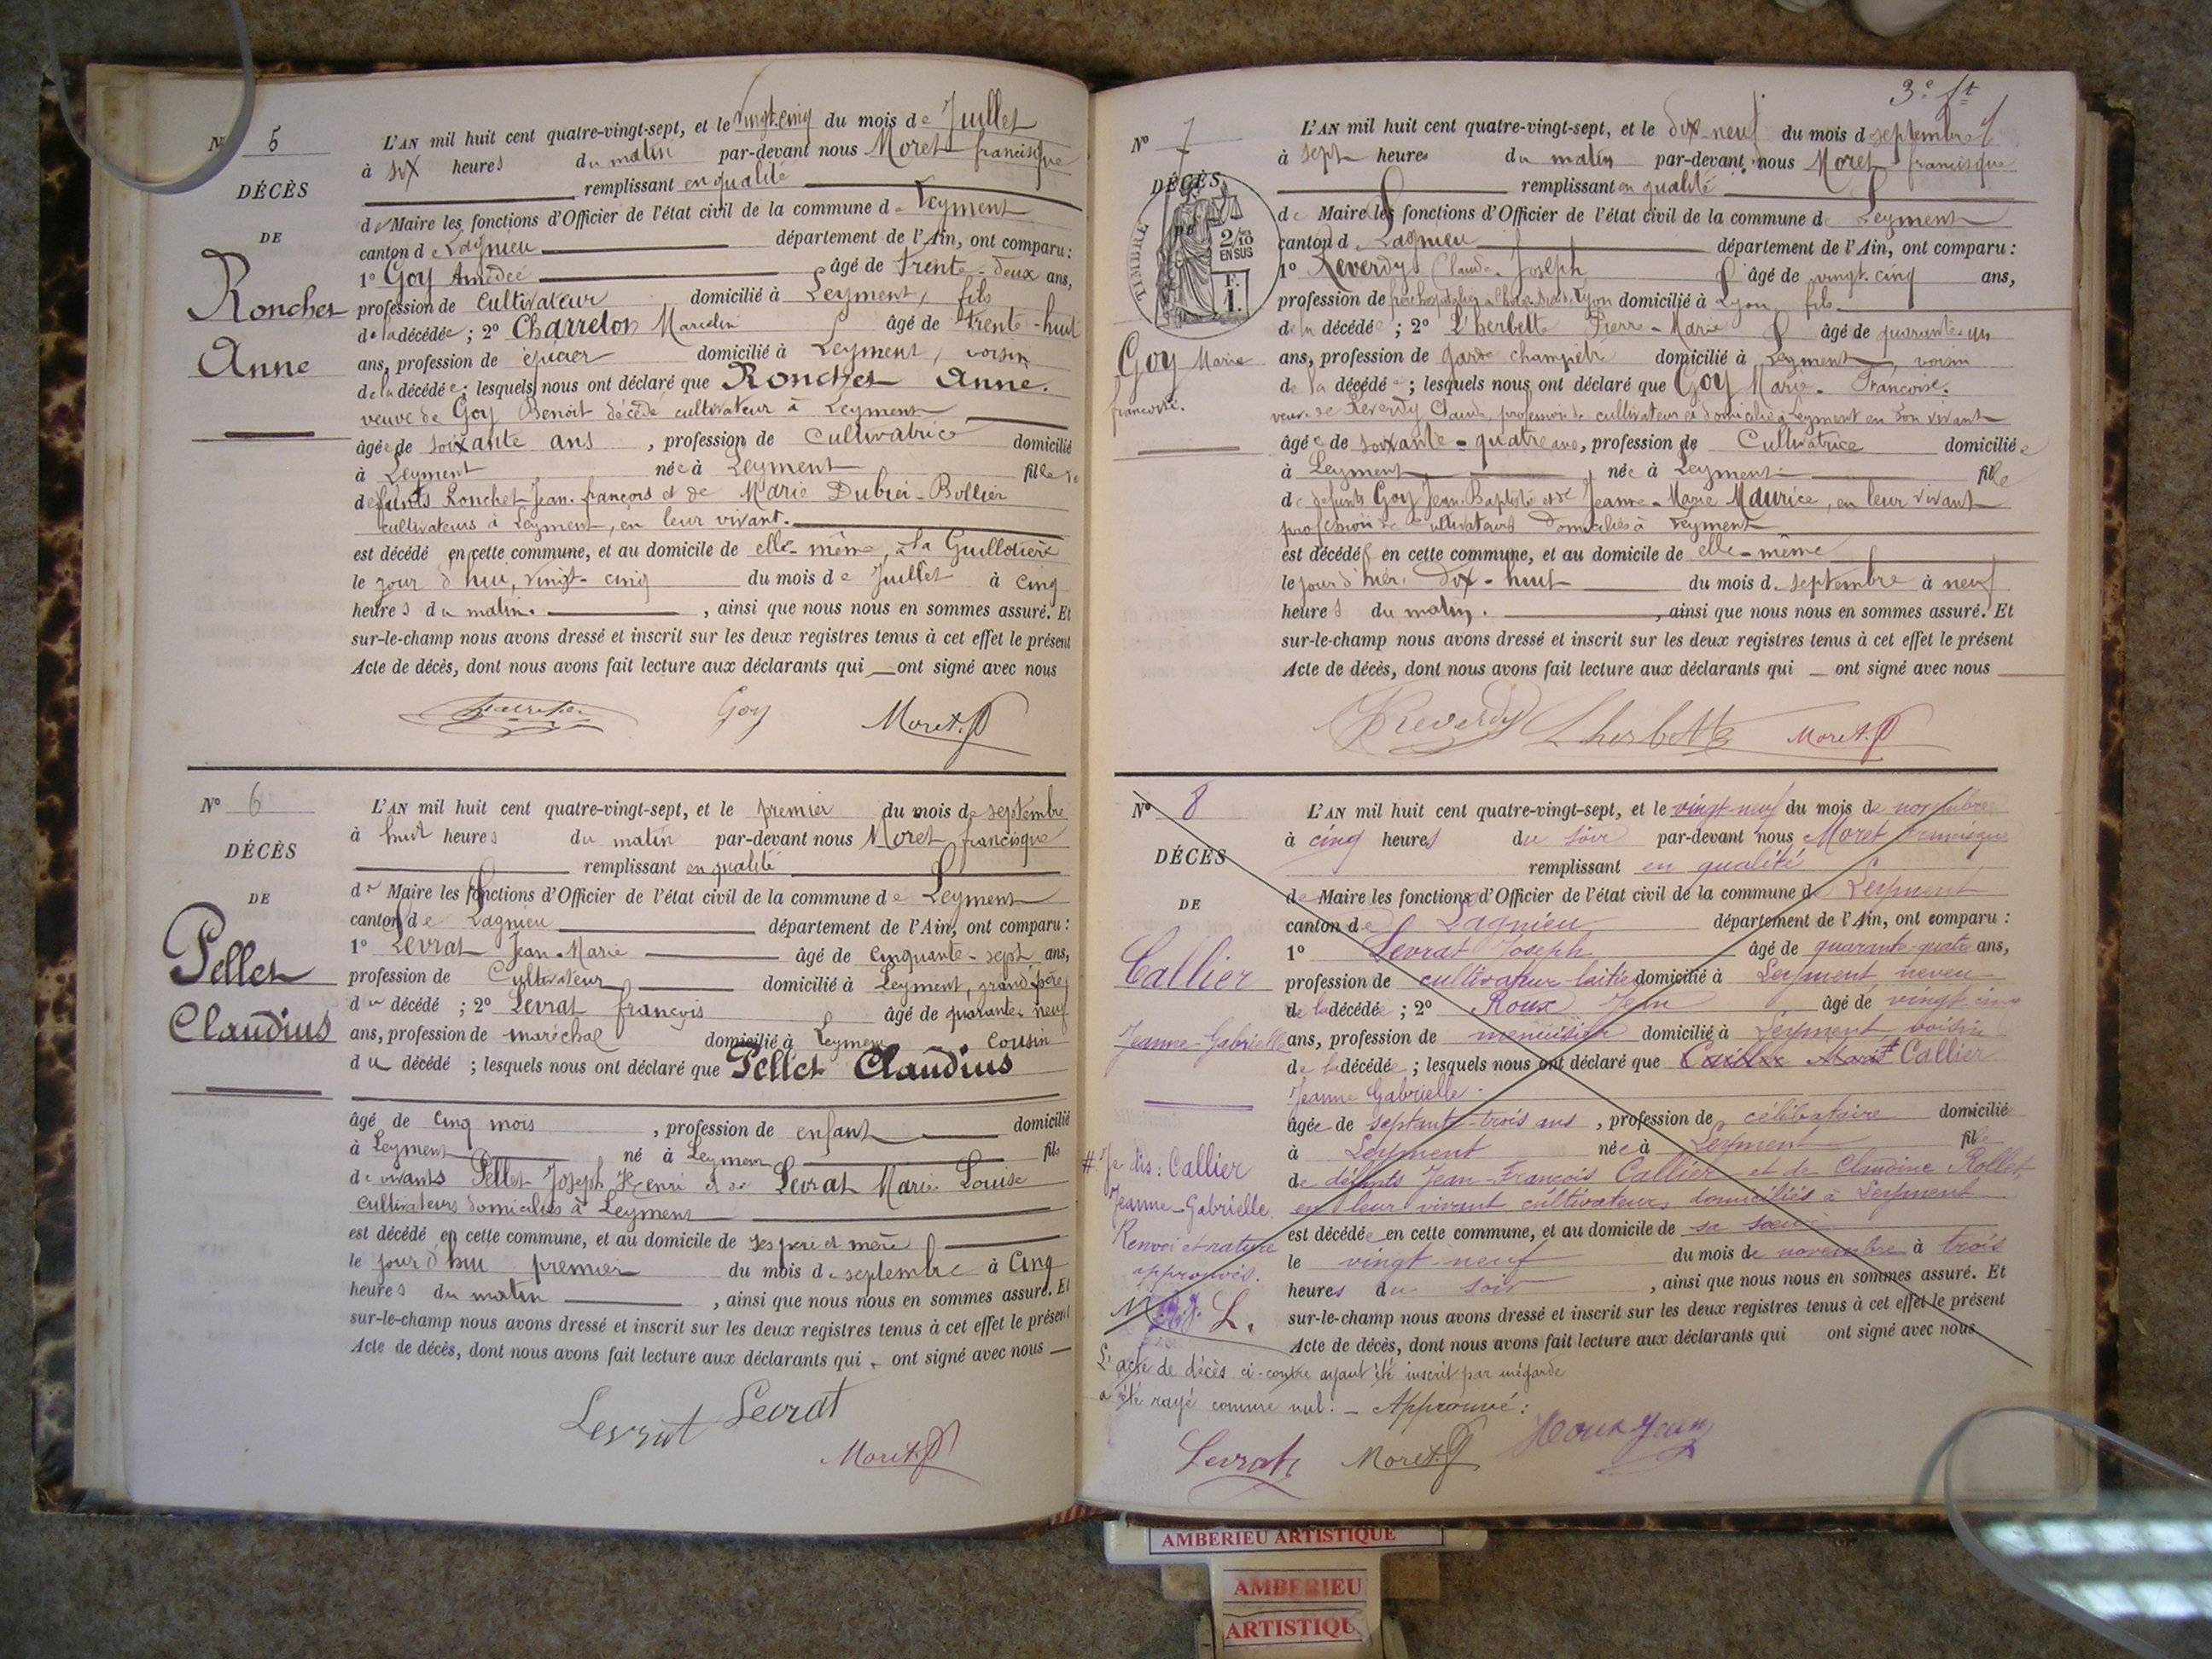 N° 5
DÉCÈS
DE
Ronchet
Anne
L'AN mil huit cent quatre-vingt-sept, et le vingt-cinq du mois de Juillet
à six heures du matin par-devant nous Moret francisque
remplissant en qualité
de Maire les fonctions d'Officier de l'état civil de la commune de Leyment
canton de Lagnieu département de l'Ain, ont comparu :
1° Goy Amédée âgé de trente-deux ans,
profession de Cultivateur domicilié à Leyment, fils
de la décédée ; 2° Charreton Marcelin âgé de trente-huit
ans, profession de épicier domicilié à Leyment, voisin
de la décédée ; lesquels nous ont déclaré que Ronchet Anne.
veuve de Goy Benoit décédé cultivateur à Leyment
âgée de soixante ans , profession de Cultivatrice domicilié
à Leyment née à Leyment fille
defunts Ronchet Jean-françois et de Marie Dubrei-Bollier
cultivateurs à Leyment, en leur vivant.
est décédé en cette commune, et au domicile de elle-même, à la Guillotière
le jour d'hui, vingt-cinq du mois de Juillet à cinq
heures du matin. , ainsi que nous nous en sommes assuré. Et
sur-le-champ nous avons dressé et inscrit sur les deux registres tenus à cet effet le présent
Acte de décès, dont nous avons fait lecture aux déclarants qui ont signé avec nous
Goy Moret. F
N° 6
DÉCÈS
DE
Pellet
Claudius
L'AN mil huit cent quatre-vingt-sept, et le premier du mois de septembre
à huit heures du matin par-devant nous Moret francisque
remplissant en qualité
de Maire les fonctions d'Officier de l'état civil de la commune de Leyment
canton de Lagnieu département de l'Ain, ont comparu :
1° Levrat Jean-Marie âgé de cinquante-sept ans,
profession de Cultivateur domicilié à Leyment, grand'père
du décédé ; 2° Levrat françois âgé de quarante-neuf
ans, profession de maréchal domicilié à Leyment cousin
du décédé ; lesquels nous ont déclaré que Pellet Claudius
âgé de cinq mois , profession de enfant domicilié
à Leyment né à Leyment fils
de vivants Pellet Joseph Henri et de Levrat Marie Louise
cultivateurs domiciliés à Leyment
est décédé en cette commune, et au domicile de ses père et mère
le jour d'hui premier du mois de septembre à cinq
heures du matin , ainsi que nous nous en sommes assuré. Et
sur-le-champ nous avons dressé et inscrit sur les deux registres tenus à cet effet le présent
Acte de décès, dont nous avons fait lecture aux déclarants qui ont signé avec nous
Levrat Levrat
Moret. F
3e ft
N° 7
DÉCÈS
DE
TIMBRE
2/10
EN SUS
F.
1.
Goy Marie
francoise.
L'AN mil huit cent quatre-vingt-sept, et le dix-neuf du mois de septembre
à sept heures du matin par-devant nous Moret francisque
remplissant en qualité
de Maire les fonctions d'Officier de l'état civil de la commune de Leyment
canton de Lagnieu département de l'Ain, ont comparu :
1° Reverdy Claude-Joseph âgé de vingt-cinq ans,
profession de domicilié à Lyon fils
de la décédée ; 2° L'herbette Pierre-Marie âgé de quarante-un
ans, profession de garde champêtre domicilié à Leyment, voisin
de la décédée ; lesquels nous ont déclaré que Goy Marie-Francoise.
veuve de Reverdy Claude, profession de cultivateur et domicilié à Leyment en son vivant
âgée de soixante-quatre ans, profession de Cultivatrice domiciliée
à Leyment née à Leyment fille
de defunts Goy Jean-Baptiste et de Jeanne-Marie Maurice, en leur vivant
profession de cultivateurs domiciliés à Leyment
est décédée en cette commune, et au domicile de elle-même
le jour d'hier dix-huit du mois de septembre à neuf
heures du matin. , ainsi que nous nous en sommes assuré. Et
sur-le-champ nous avons dressé et inscrit sur les deux registres tenus à cet effet le présent
Acte de décès, dont nous avons fait lecture aux déclarants qui ont signé avec nous
Reverdy Lherbette Moret. F
N° 8
DÉCÈS
DE
Callier
Jeanne-Gabrielle
L'AN mil huit cent quatre-vingt-sept, et le vingt-neuf du mois de novembre
à cinq heures du soir par-devant nous Moret francisque
remplissant en qualité
de Maire les fonctions d'Officier de l'état civil de la commune de Leyment
canton de Lagnieu département de l'Ain, ont comparu :
1° Levrat Joseph âgé de quarante-quatre ans,
profession de cultivateur-laitier domicilié à Leyment neveu
de la décédée ; 2° Roux Jean âgé de vingt-cinq
ans, profession de menuisier domicilié à Leyment voisin
de la décédée ; lesquels nous ont déclaré que Callier
Jeanne Gabrielle.
âgée de septante-trois ans , profession de célibataire domicilié
à Leyment née à Leyment fille
de défunts Jean-François Callier et de Claudine Rollet,
en leur vivant cultivateurs domiciliés à Leyment
est décédée en cette commune, et au domicile de sa soeur
le vingt-neuf du mois de novembre à trois
heures du soir , ainsi que nous nous en sommes assuré. Et
sur-le-champ nous avons dressé et inscrit sur les deux registres tenus à cet effet le présent
Acte de décès, dont nous avons fait lecture aux déclarants qui ont signé avec nous
# Je dis : Callier
Jeanne-Gabrielle.
Renvoi et rature
approuvés.
L.
L'acte de décès ci-contre ayant été inscrit par mégarde
a été rayé comme nul. - Approuvé :
Levrat Moret. F Roux Jean
AMBERIEU ARTISTIQUE
AMBERIEU
ARTISTIQU